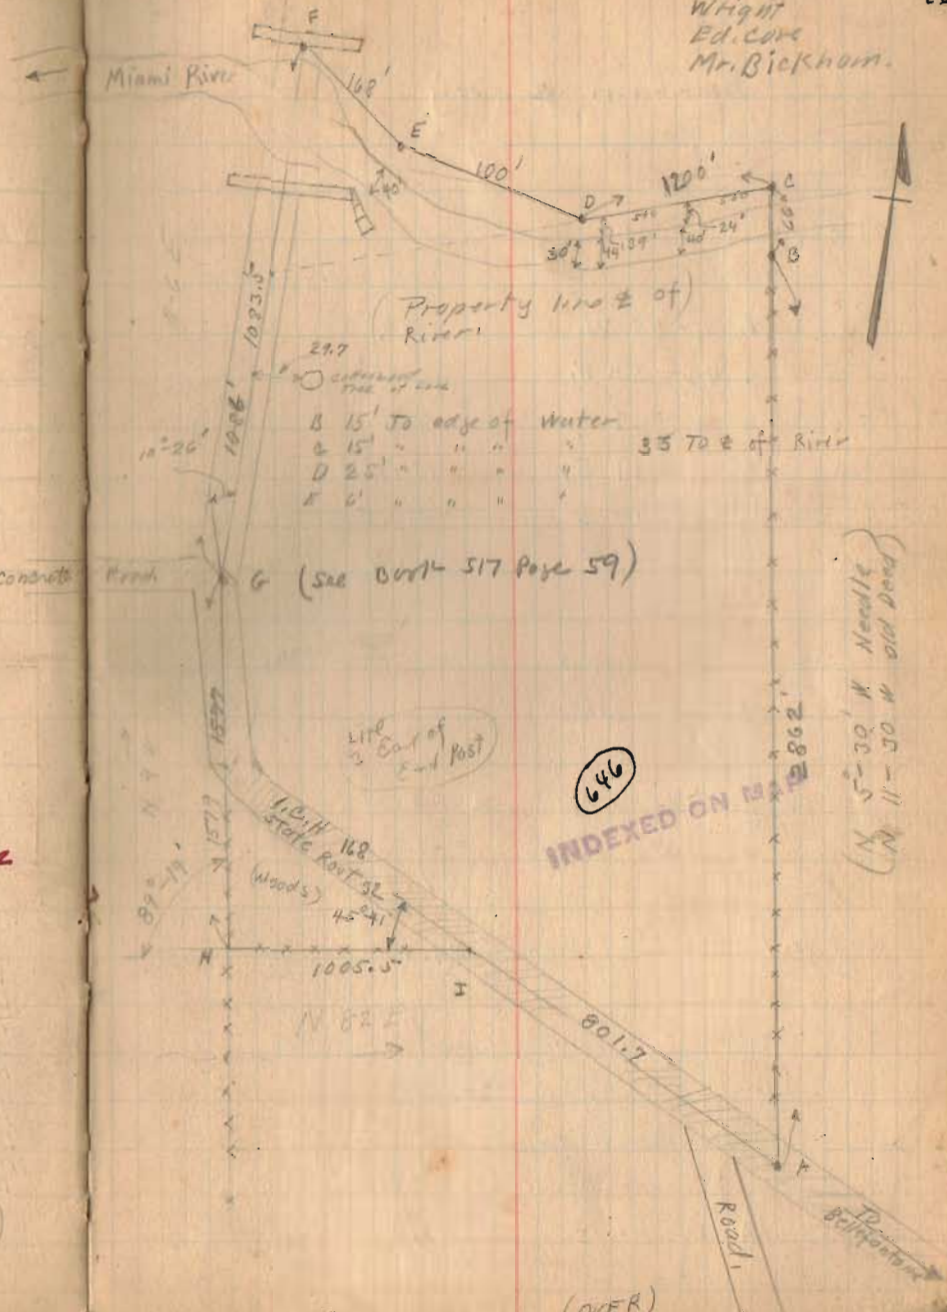 Wright
Ed. Core
Mr. Bickham.
F
Miami River
168'
E
100'
D
1200'
C
60'
B
40'
30'
44'
39'
40'
24'
1083.5'
(Property line ⅊ of)
River.
29.7
1086'
10°-26'
B 15' To edge of Water
C 15' " " " "
D 25' " " " "
E 6' " " " "
33 To ⅊ of River
Concrete Road
G (See Book 517 Page 59)
N 5°-30' W Needle
N 11-50 W Old Deed
1577
1579
East of
End Post
646
INDEXED ON MAP
2862'
I.C.H 168
State Rout 32
(Woods)
45°41'
89°-19'
H
1005.5
I
N 82 E
801.7
A
Road,
To
Bellefontaine
(OVER)